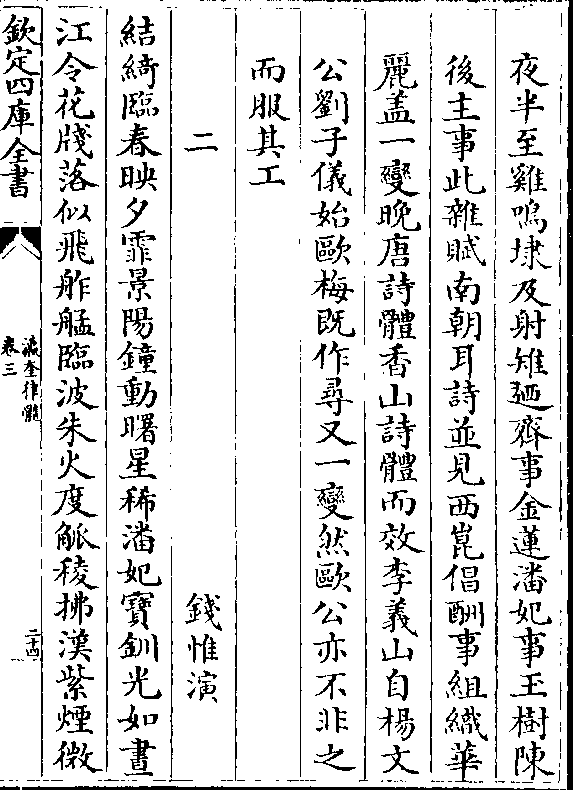 夜半至雞鳴埭及射雉廼齊事金蓮潘妃事玉樹陳
後主事此雜賦南朝耳詩並見西崑倡酬事組織華
麗盖一變晚唐詩體香山詩體而效李義山自楊文
公劉子儀始歐梅既作尋又一變然歐公亦不非之
而服其工
二　錢惟演
結綺臨春映夕霏景陽鐘動曙星稀潘妃寶釧光如晝
江令花牋落似飛舴艋臨波朱火度觚稜拂漢紫煙微
欽定四庫全書
瀛奎律髓
卷三
二十四